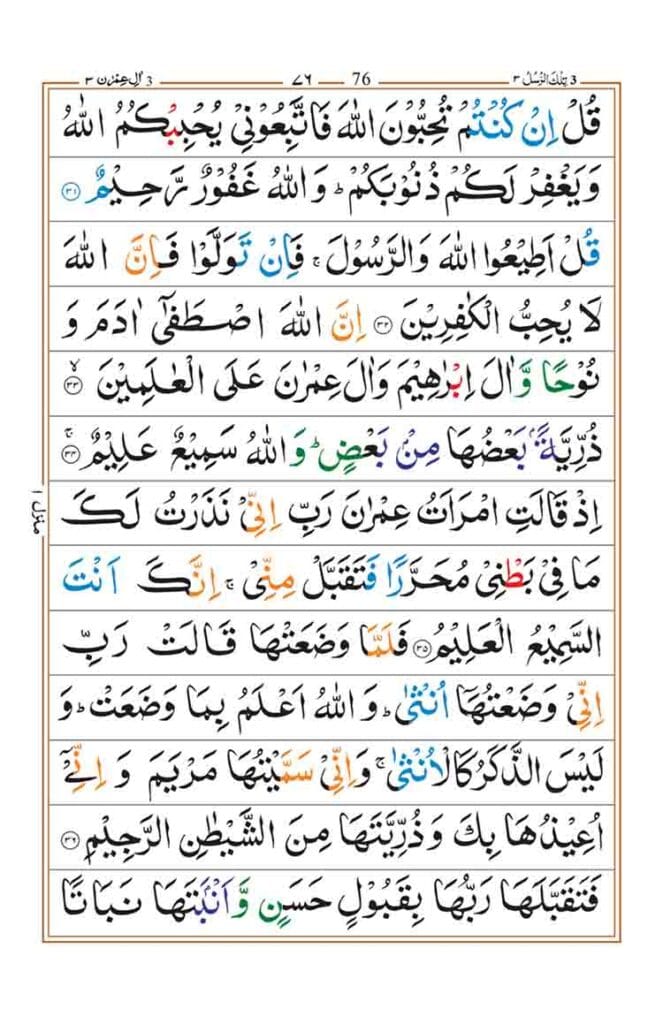 اٰل عمرٰن ٣ 3 ٧٦ 76 تلك الرسل ٣ 3
قُلْ اِنْ كُنْتُمْ تُحِبُّوْنَ اللّٰهَ فَاتَّبِعُوْنِيْ يُحْبِبْكُمُ اللّٰهُ
وَيَغْفِرْ لَكُمْ ذُنُوْبَكُمْ ؕ وَاللّٰهُ غَفُوْرٌ رَّحِيْمٌ ۝٣١
قُلْ اَطِيْعُوا اللّٰهَ وَالرَّسُوْلَ ۚ فَاِنْ تَوَلَّوْا فَاِنَّ اللّٰهَ
لَا يُحِبُّ الْكٰفِرِيْنَ ۝٣٢ اِنَّ اللّٰهَ اصْطَفٰٓى اٰدَمَ وَ
نُوْحًا وَّاٰلَ اِبْرٰهِيْمَ وَاٰلَ عِمْرٰنَ عَلَى الْعٰلَمِيْنَ ۙ۝٣٣
ذُرِّيَّةًۢ بَعْضُهَا مِنْۢ بَعْضٍ ؕ وَاللّٰهُ سَمِيْعٌ عَلِيْمٌ ۚ۝٣٤
اِذْ قَالَتِ امْرَاَتُ عِمْرٰنَ رَبِّ اِنِّيْ نَذَرْتُ لَكَ
مَا فِيْ بَطْنِيْ مُحَرَّرًا فَتَقَبَّلْ مِنِّيْ ۚ اِنَّكَ اَنْتَ
السَّمِيْعُ الْعَلِيْمُ ۝٣٥ فَلَمَّا وَضَعَتْهَا قَالَتْ رَبِّ
اِنِّيْ وَضَعْتُهَاۤ اُنْثٰى ؕ وَاللّٰهُ اَعْلَمُ بِمَا وَضَعَتْ ؕ وَ
لَيْسَ الذَّكَرُ كَالْاُنْثٰى ۚ وَاِنِّيْ سَمَّيْتُهَا مَرْيَمَ وَ اِنِّيْۤ
اُعِيْذُهَا بِكَ وَذُرِّيَّتَهَا مِنَ الشَّيْطٰنِ الرَّجِيْمِ ۝٣٦
فَتَقَبَّلَهَا رَبُّهَا بِقَبُوْلٍ حَسَنٍ وَّاَنْۢبَتَهَا نَبَاتًا
منزل ١